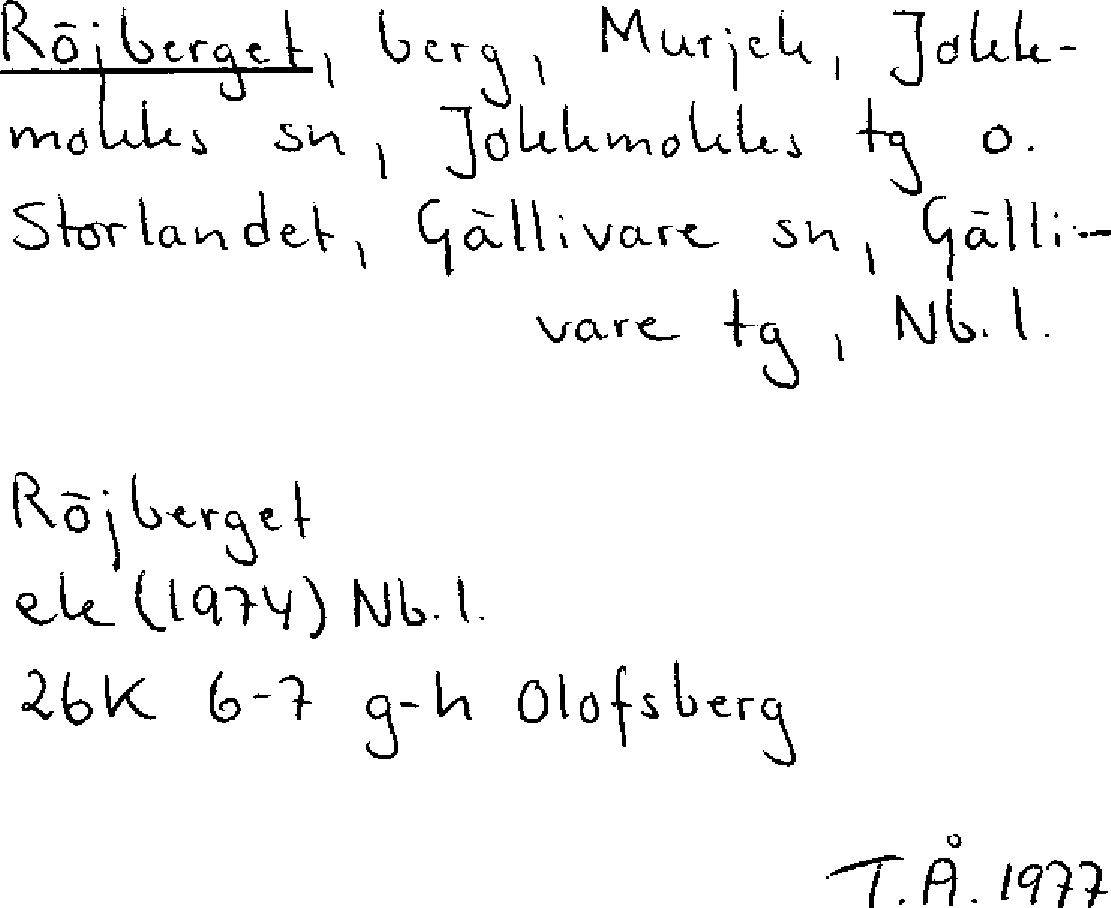 Röjberget, berg, Murjek, Jokk-
mokks sn, Jokkmokks tg o.
Storlandet, Gällivare sn, Gälli-
vare tg, Nb. l.
Röjberget
ek (1974) Nb. l.
26K 6-7 g-h Olofsberg
T.Å. 1977